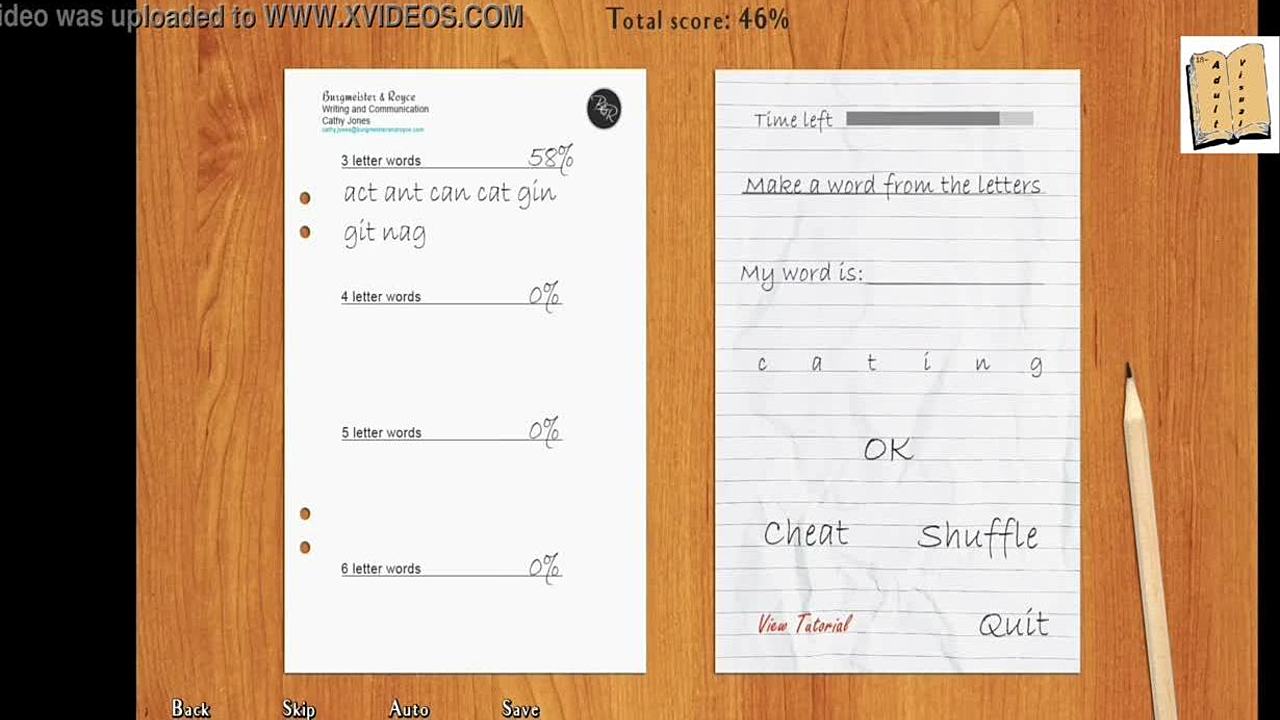 ideo was uploaded to WWW.XVIDEOS.COM
Total score: 46%
18+
Adult Visual
Burgmeister & Royce
Writing and Communication
Cathy Jones
cathy.jones@burgmeisterandroyce.com
B&R
3 letter words 58%
act ant can cat gin
git nag
4 letter words 0%
5 letter words 0%
6 letter words 0%
Time left
Make a word from the letters
My word is:
c a t i n g
OK
Cheat Shuffle
View Tutorial Quit
Back Skip Auto Save